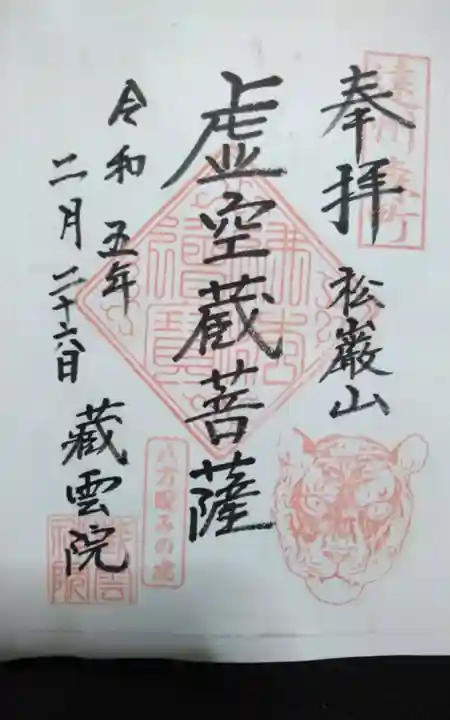 遠州森町
奉拝
松巌山
虚空蔵菩薩
八方睨みの虎
令和五年
二月二十六日
蔵雲院